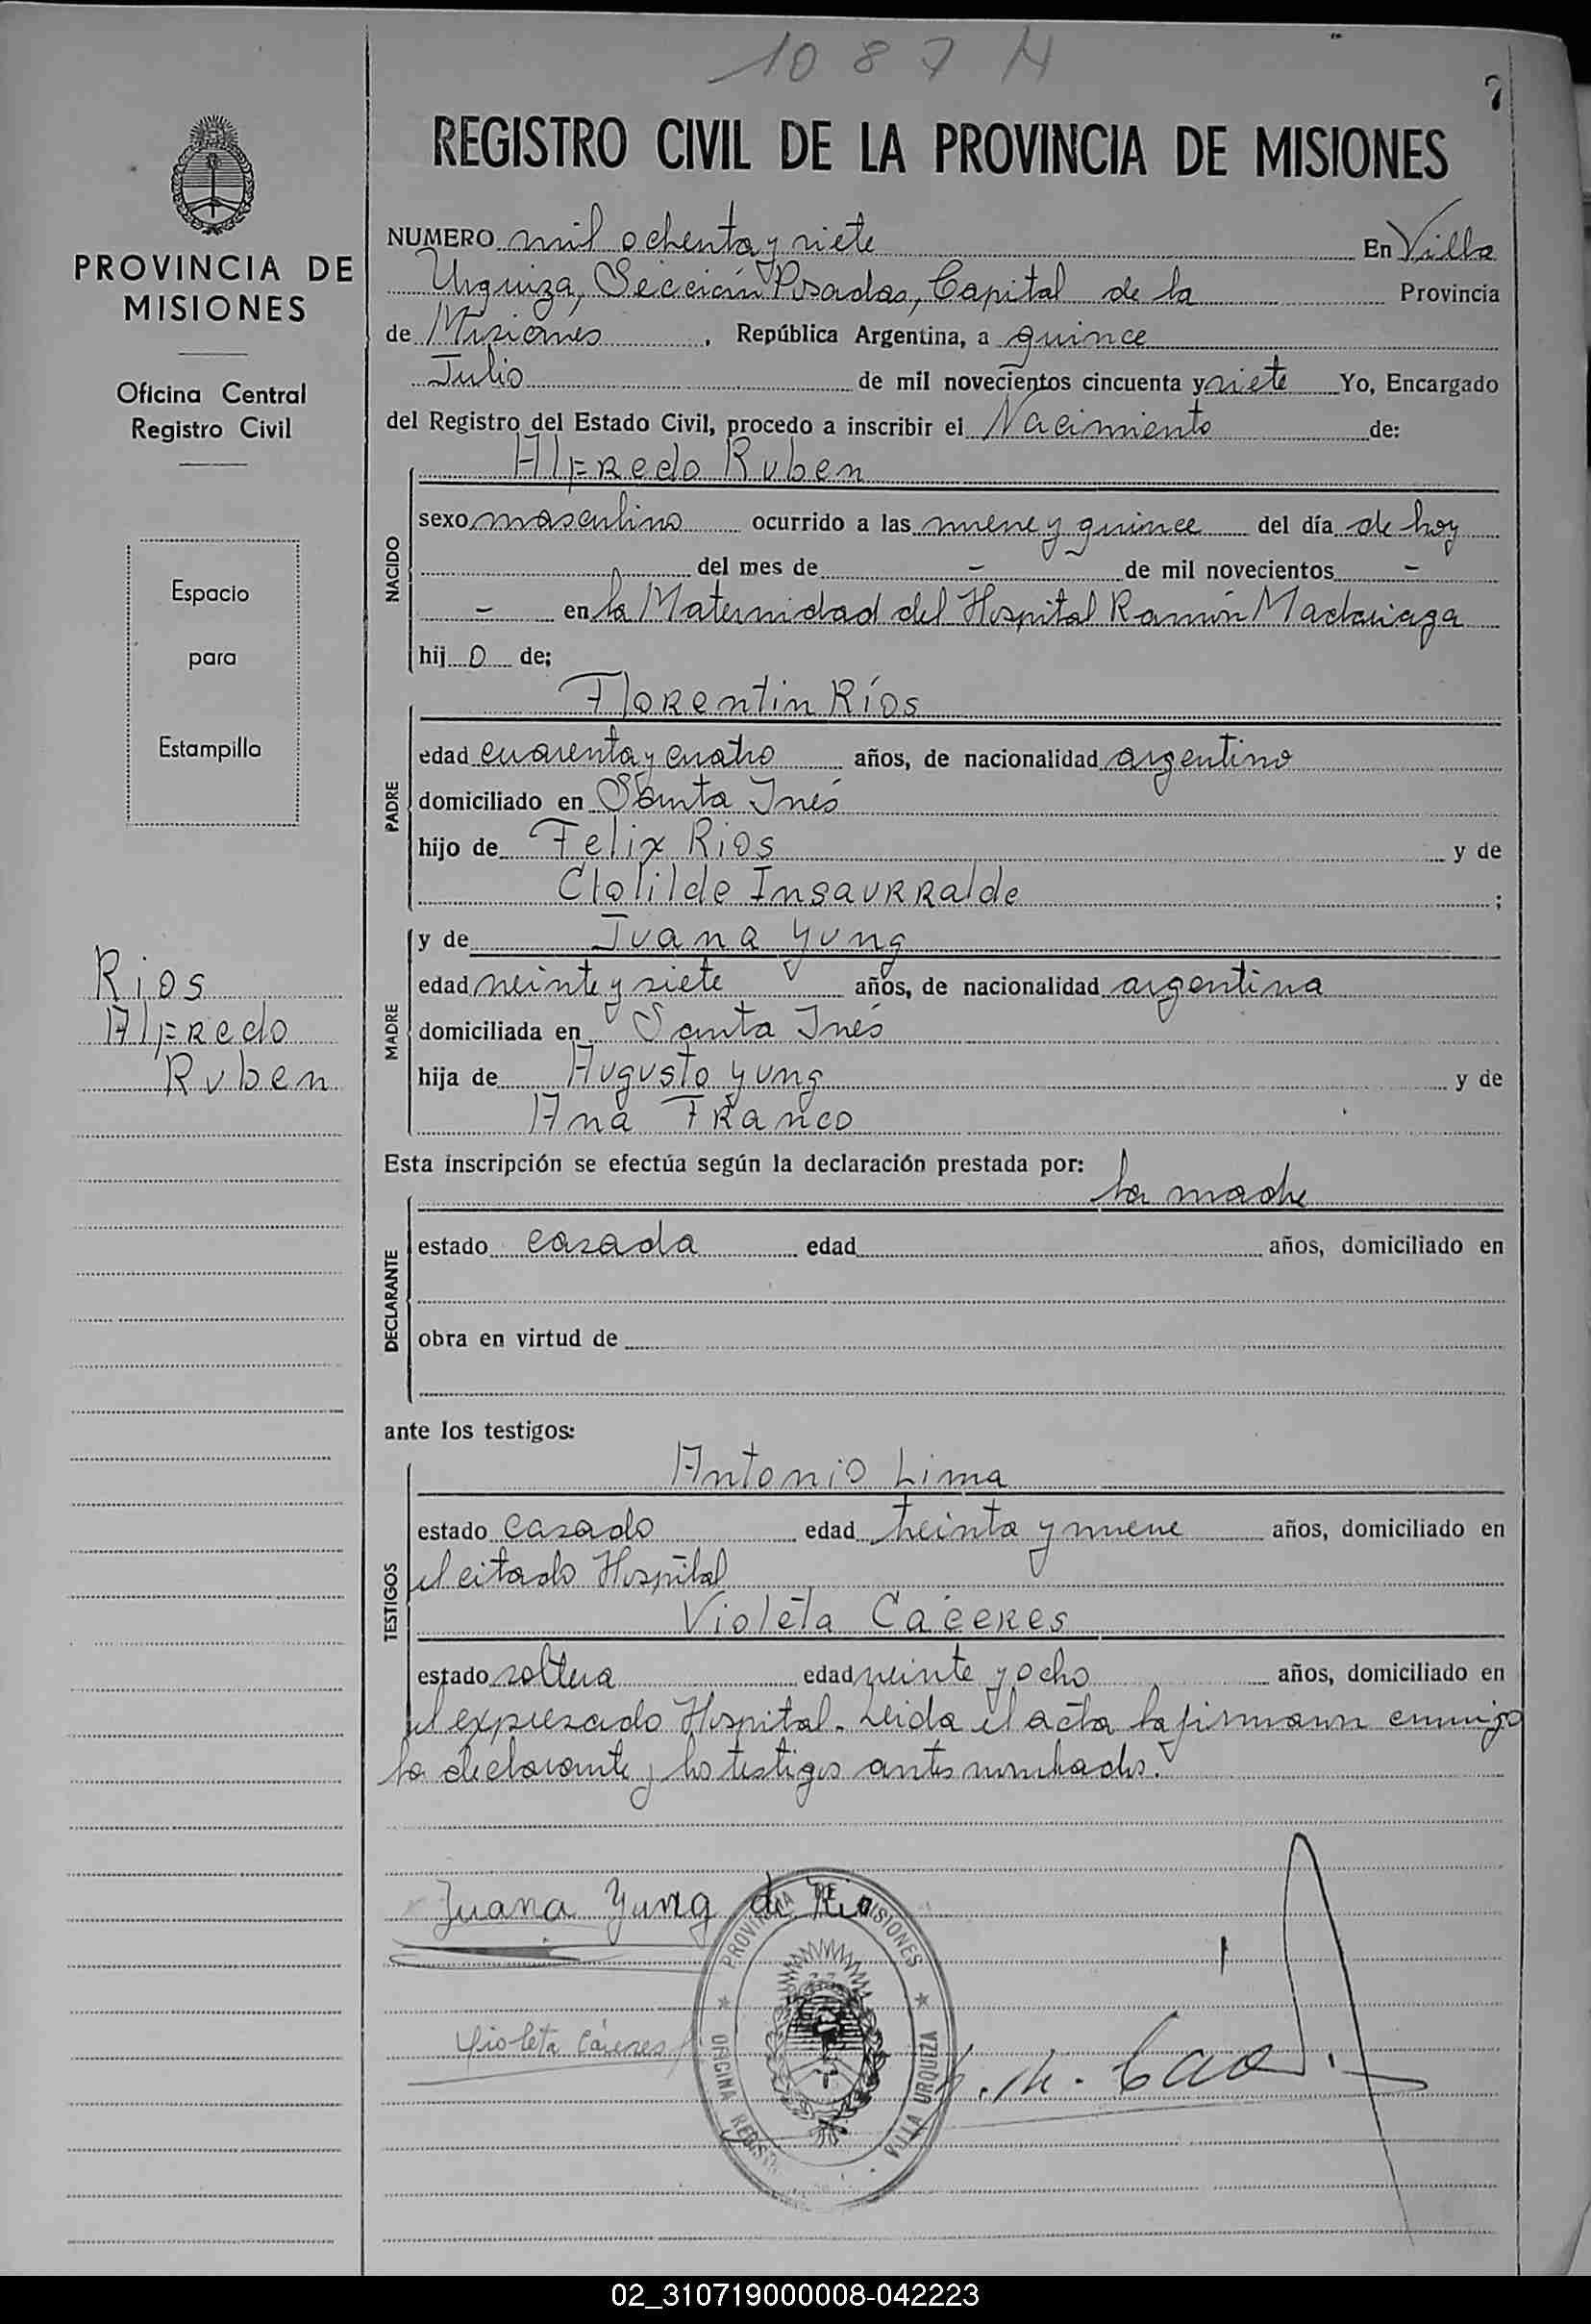 1087 N
7
REGISTRO CIVIL DE LA PROVINCIA DE MISIONES
PROVINCIA DE
MISIONES
Oficina Central
Registro Civil
Espacio
para
Estampilla
Rios
Alfredo
Ruben
NUMERO mil ochenta y siete En Villa
Urquiza, Sección Posadas, Capital de la Provincia
de Misiones, República Argentina, a quince
Julio de mil novecientos cincuenta y siete Yo, Encargado
del Registro del Estado Civil, procedo a inscribir el Nacimiento de:
Alfredo Ruben
NACIDO
sexo masculino ocurrido a las nueve y quince del día de hoy
del mes de - de mil novecientos -
- en la Maternidad del Hospital Ramón Madariaga
hij o de;
Florentin Ríos
PADRE
edad cuarenta y cuatro años, de nacionalidad argentino
domiciliado en Santa Inés
hijo de Felix Rios y de
Clotilde Insaurralde ;
MADRE
y de Juana Yung
edad veinte y siete años, de nacionalidad argentina
domiciliada en Santa Inés
hija de Augusto Yung y de
Ana Franco
Esta inscripción se efectúa según la declaración prestada por:
la madre
DECLARANTE
estado casada edad años, domiciliado en
obra en virtud de
ante los testigos:
Antonio Lima
TESTIGOS
estado casado edad treinta y nueve años, domiciliado en
el citado Hospital
Violeta Cáceres
estado soltera edad veinte y ocho años, domiciliado en
el expresado Hospital. Leida el acta la firmann conmigo
la declarante y los testigos antes nombrados.
Juana Yung de Rio
Violeta Cáceres
PROVINCIA DE MISIONES
OFICINA REGISTRO
VILLA URQUIZA
02_310719000008-042223